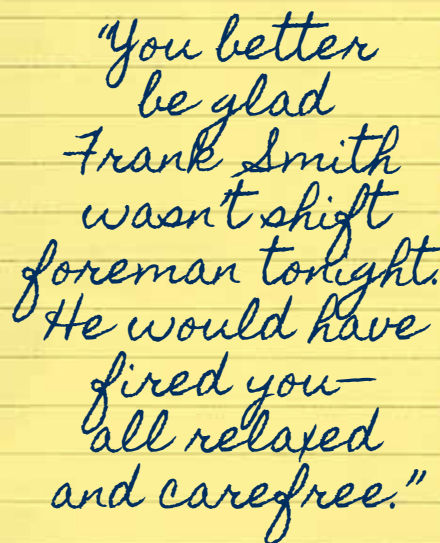 "You better
be glad
Frank Smith
wasn't shift
foreman tonight.
He would have
fired you—
all relaxed
and carefree."